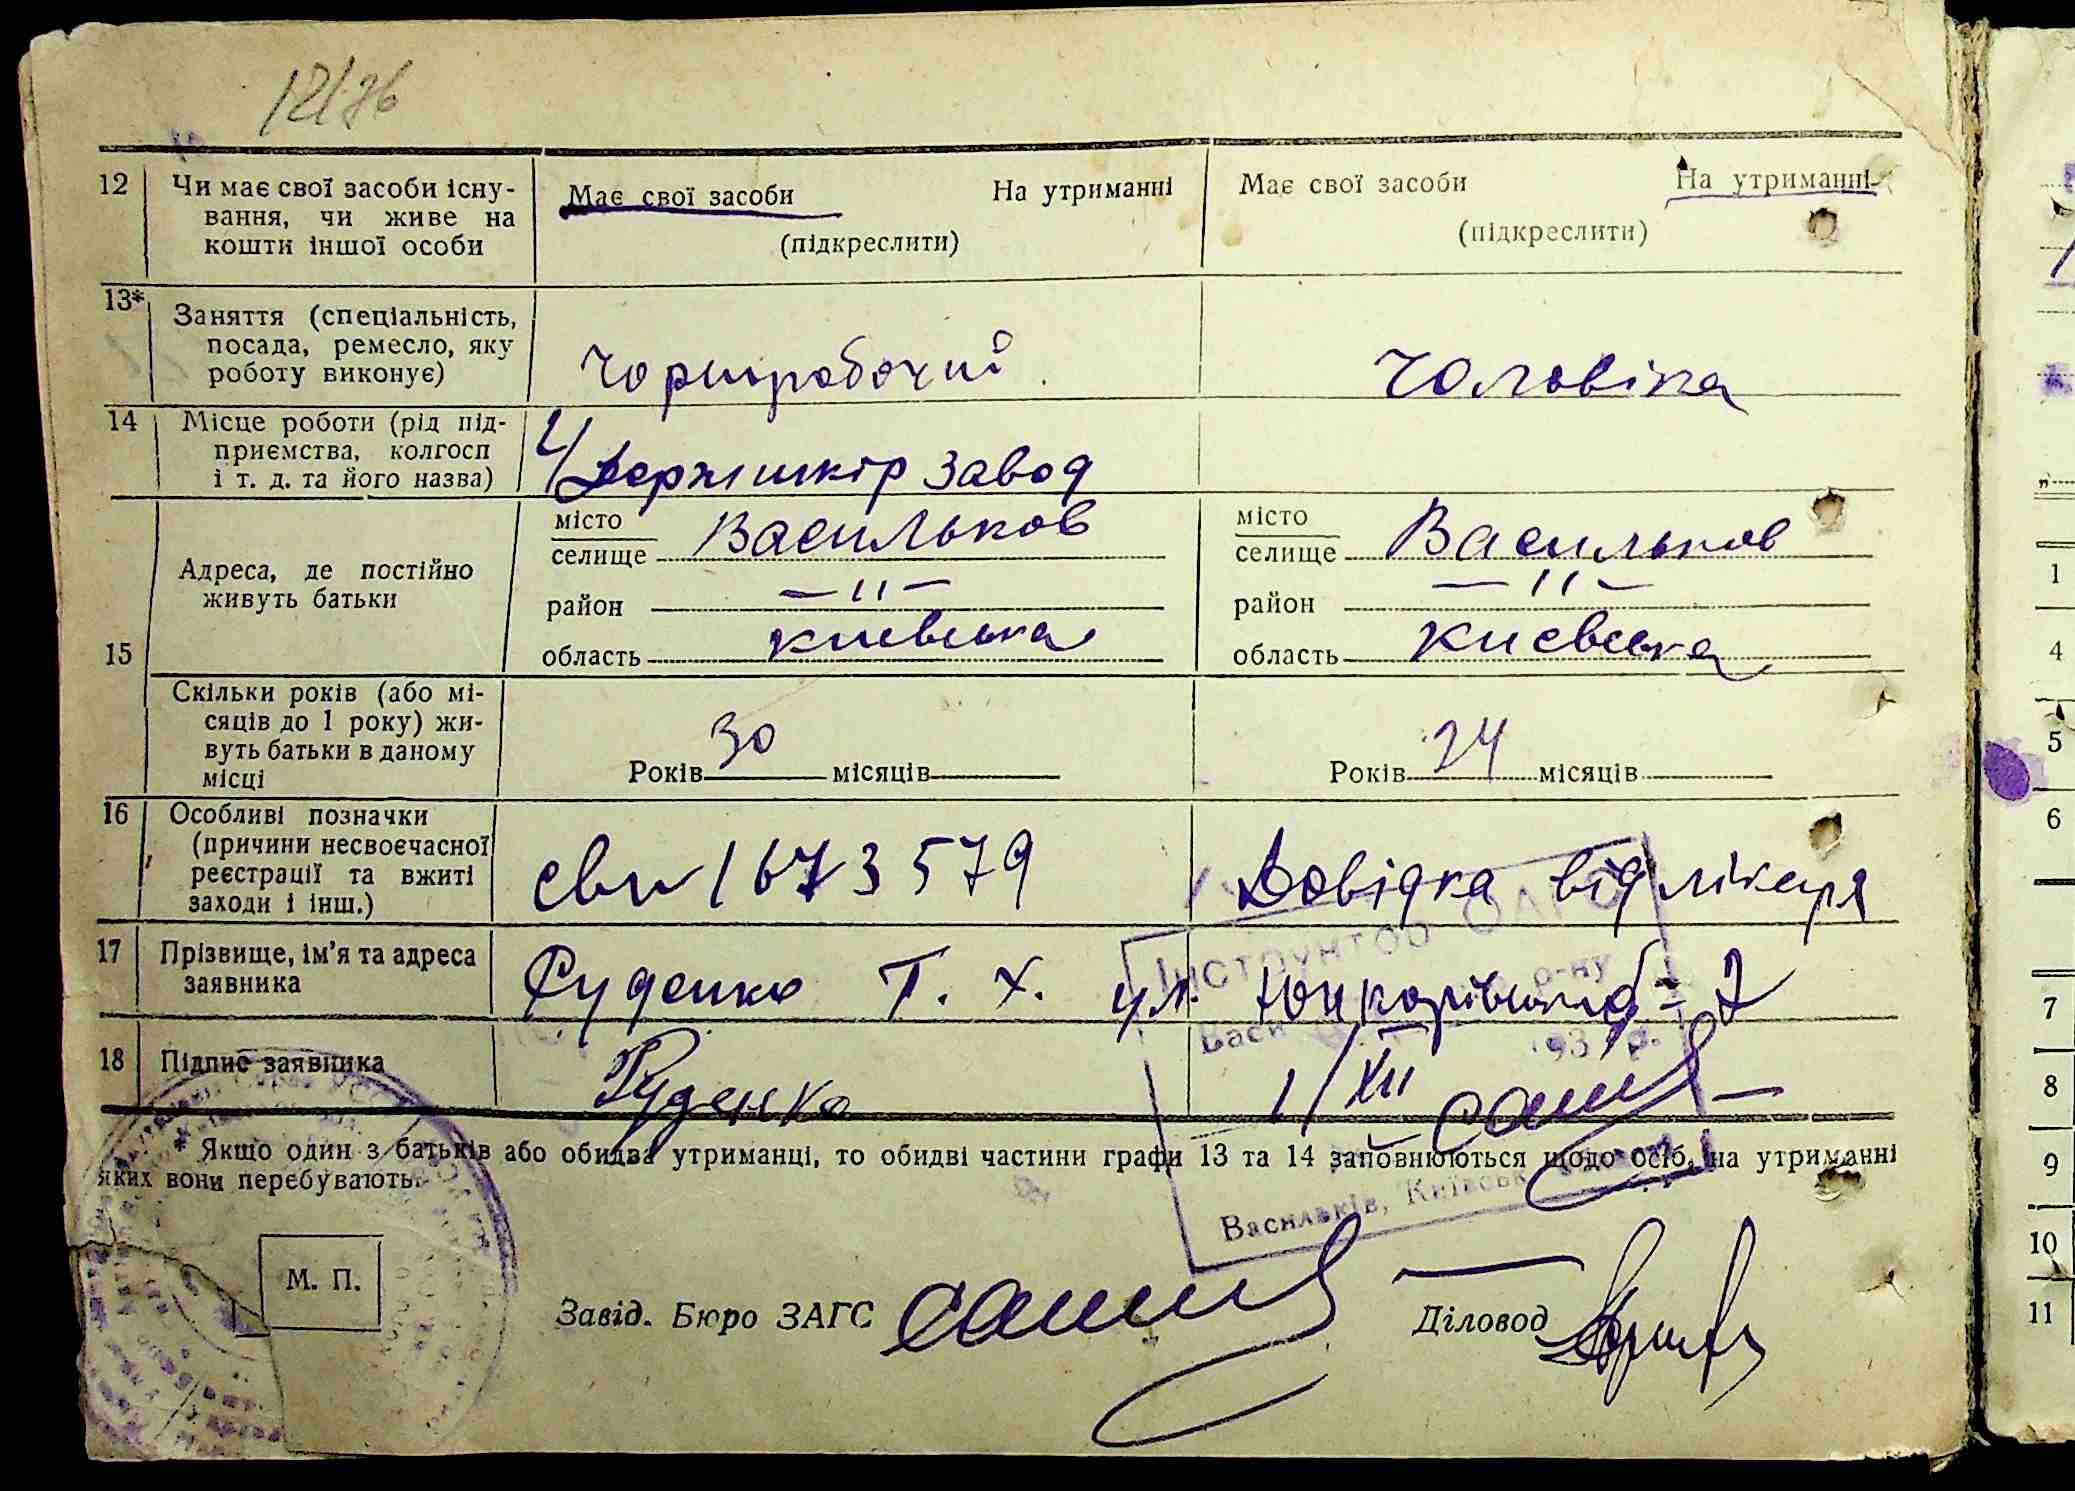 12/76
12 Чи має свої засоби існу- Має свої засоби На утриманні Має свої засоби На утриманні
вання, чи живе на (підкреслити) (підкреслити)
кошти іншої особи
13* Заняття (спеціальність,
посада, ремесло, яку Чорноробочий Чоловіка
роботу виконує)
14 Місце роботи (рід під-
приємства, колгосп Держшкір завод
і т. д. та його назва)
місто Васильков місто Васильков
селище селище
Адреса, де постійно
живуть батьки район —11— район —11—
15 область Киевська область Киевська
Скільки років (або мі-
сяців до 1 року) жи-
вуть батьки в даному Років 30 місяців Років 24 місяців
місці
16 Особливі позначки
(причини несвоєчасної
реєстрації та вжиті 1673579 Довідка від лікаря
заходи і інш.)
17 Прізвище, ім'я та адреса Руденко Т. Х. ул.
заявника
18 Підпис заявника Руденко 1/XII
* Якщо один з батьків або обидва утриманці, то обидві частини графи 13 та 14 заповнюються щодо осіб, на утриманні
яких вони перебувають.
Інструктор ОАГС
р-ну
193 р.
Васильків,
М. П.
Завід. Бюро ЗАГС Діловод
1
4
5
6
7
8
9
10
11